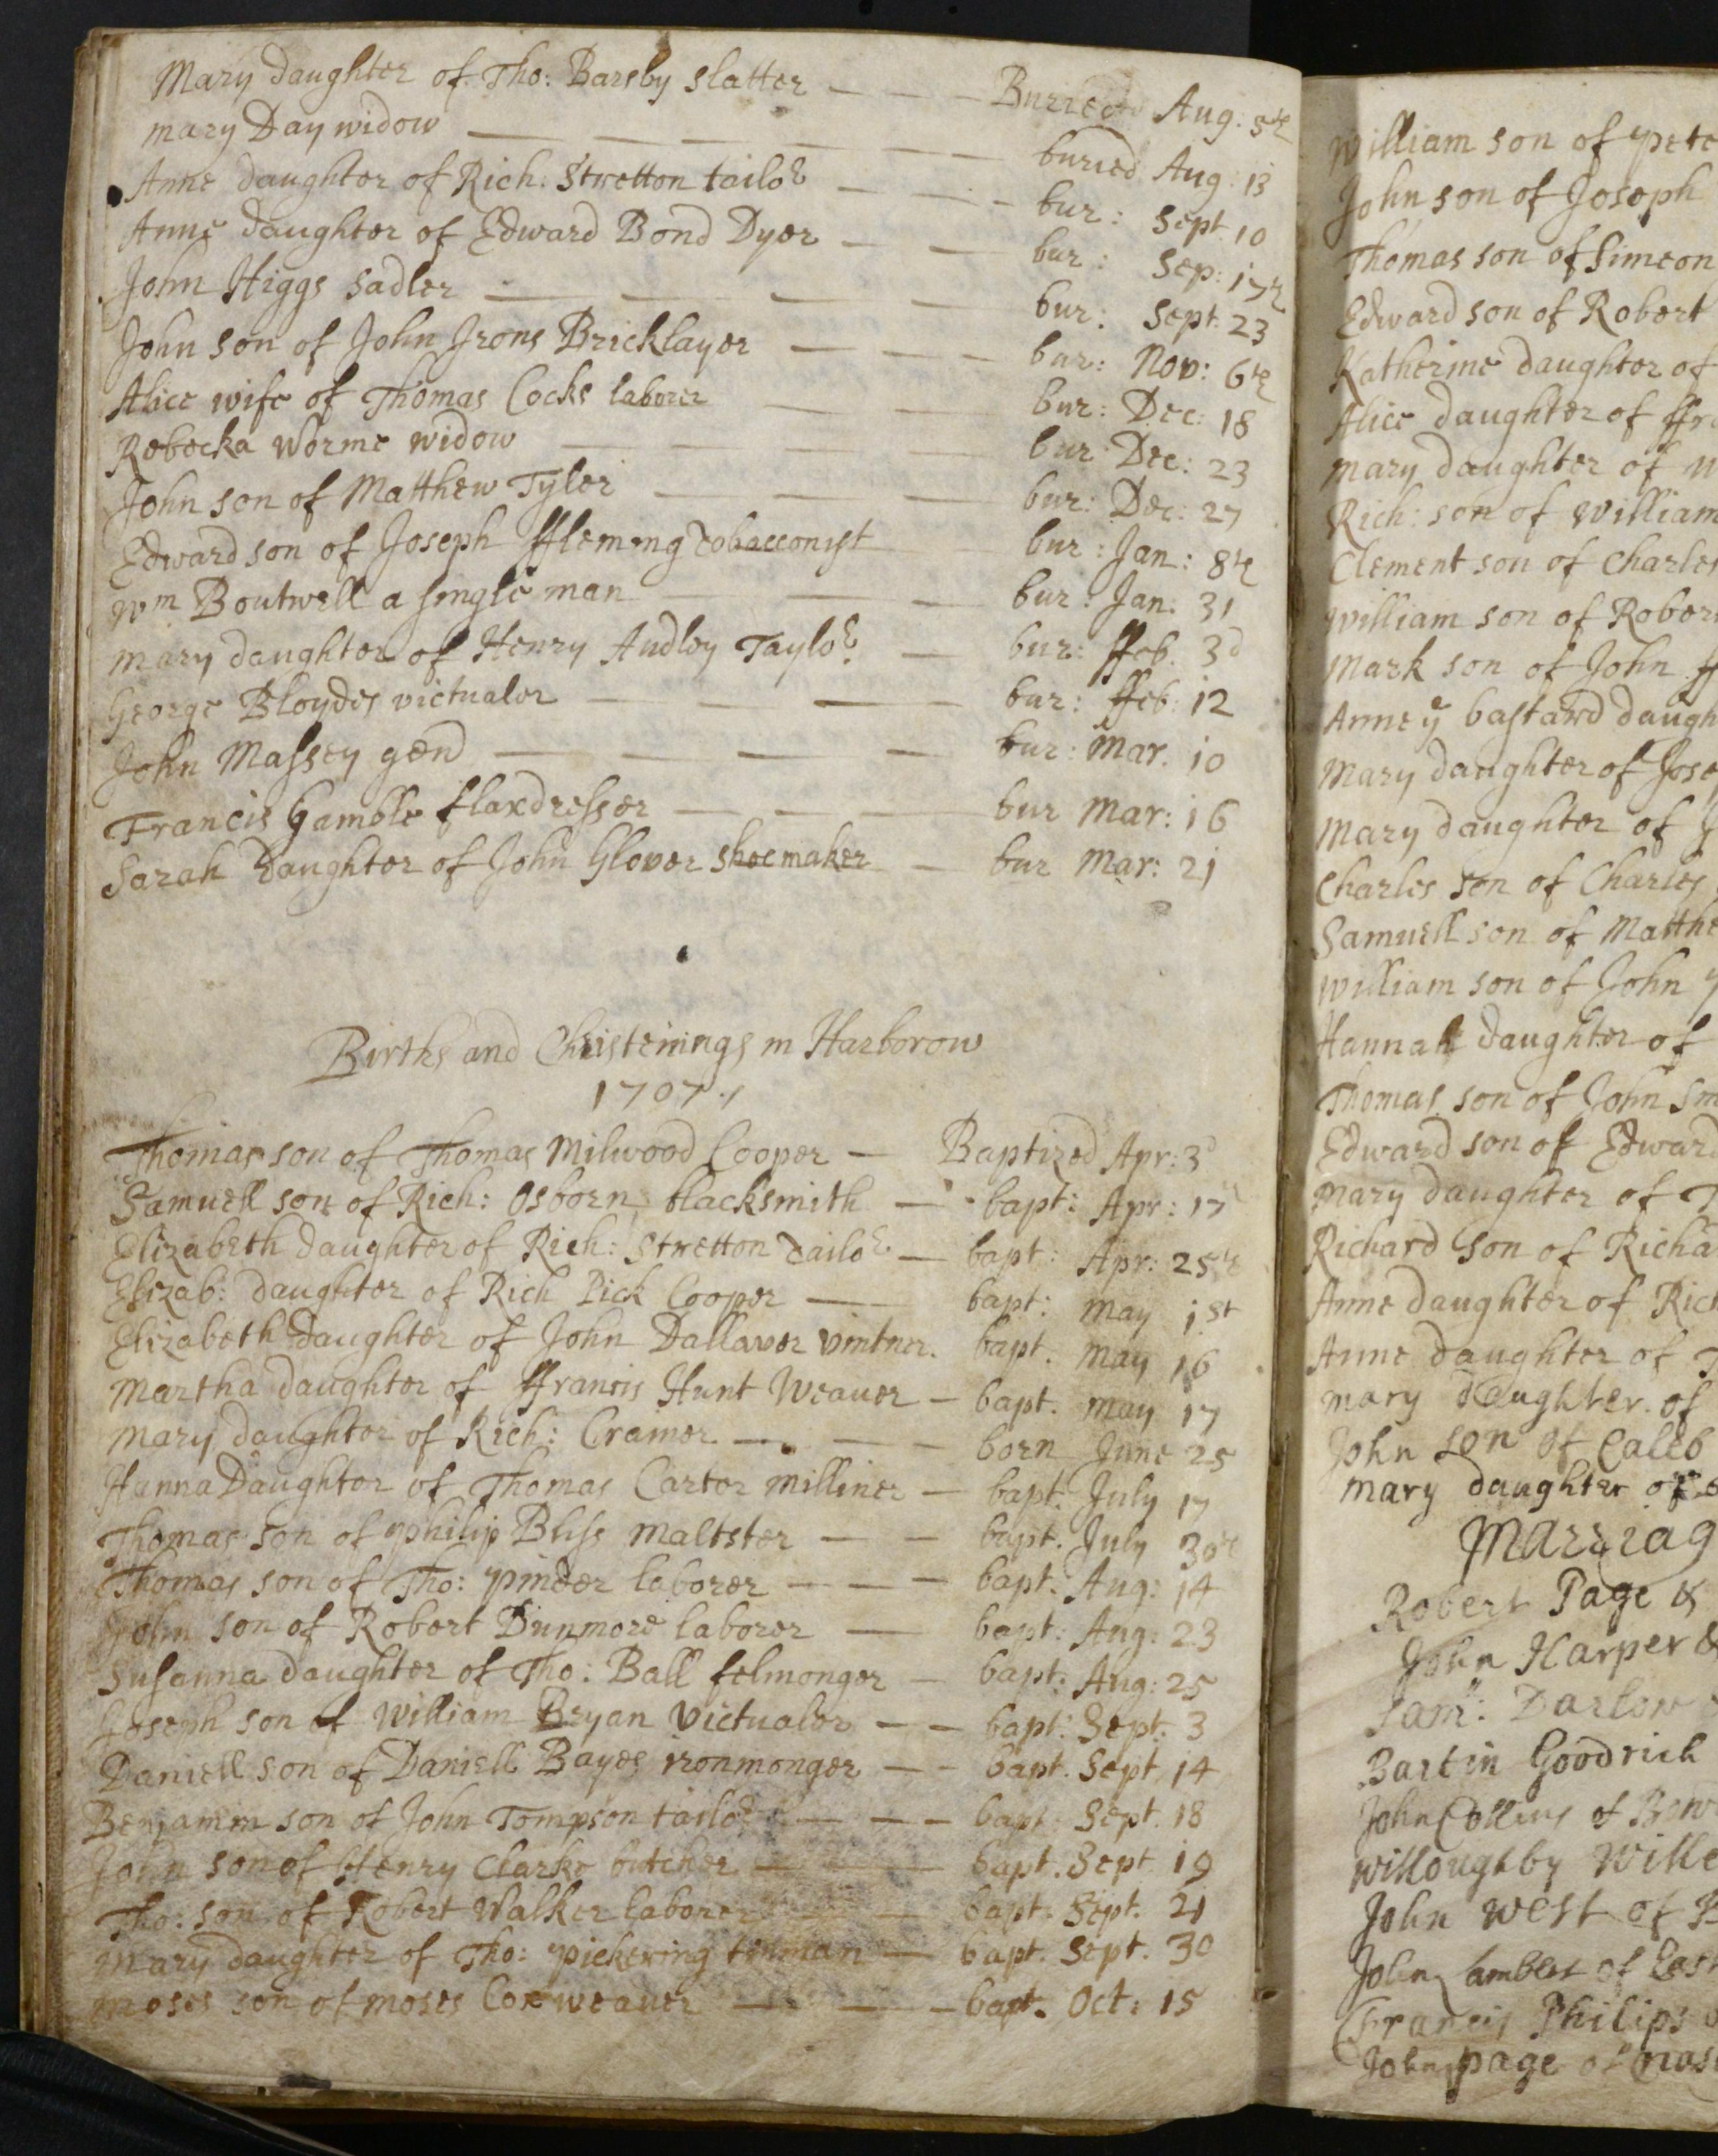 Mary daughter of Tho: Barsby slatter — — — Buried Aug. 5th
mary Day widow — — — — — buried Aug: 13
Anne daughter of Rich: Stretton tailor — — — bur: Sept. 10
Anne daughter of Edward Bond Dyer — — bur: Sep: 17th
John Higgs Sadler — — — — bur: Sept: 23
John son of John Irons Bricklayer — — — bur: Nov: 6th
Alice wife of Thomas Cocks laborer — — bur: Dec: 18
Rebecka Worme widow — — — — bur: Dec: 23
John son of Matthew Tyler — — — bur: Dec: 27
Edward son of Joseph ffleming tobacconist — bur: Jan: 8th
Wm Boutwell a single man — — — bur: Jan: 31
Mary daughter of Henry Audley Taylor — bur: ffeb. 3d
George Bloydes victualer — — — — bur: ffeb: 12
John Massey gend — — — — bur: Mar. 10
Francis Gamble flaxdresser — — — bur Mar: 16
Sarah Daughter of John Glover shoemaker — bur Mar: 21
Births and Christenings in Harborow
1707
Thomas son of Thomas Milwood Cooper — Baptized Apr: 3d
Samuell son of Rich: Osborn blacksmith — bapt: Apr: 17
Elizabeth daughter of Rich: Stretton tailor — bapt: Apr: 25th
Elizab: daughter of Rich Pick Cooper — bapt: May 1st
Elizabeth Daughter of John Dallaver vintner. bapt. May 16
Martha daughter of ffrancis Hunt Weaver — bapt. May 17
Mary daughter of Rich: Cramer — — — born June 25
Hanna Daughter of Thomas Carter Milliner — bapt. July 17
Thomas son of philip Bliss Maltster — — bapt. July 30th
Thomas son of Tho: pinder laborer — — — bapt. Aug: 14
John son of Robert Dunmore laborer — bapt: Aug: 23
Susanna daughter of Tho: Ball felmonger — bapt: Aug: 25
Joseph son of William Bryan Victualer — — bapt: Sept. 3
Daniell son of Daniell Bayes ironmonger — — bapt. Sept 14
Benjamin son of John Tompson tailor — — — bapt: Sept. 18
John son of Henry Clarke butcher — — — bapt. Sept 19
Tho: son of Robert Walker laborer — — bapt. Sept. 21
Mary daughter of Tho: pickering tinman — bapt. Sept. 30
Moses son of Moses Cox weaver — — — bapt. Oct: 15
William son of pete
John son of Joseph
Thomas son of Simeon
Edward son of Robert
Katherine daughter of
Alice daughter of ffra
Mary daughter of W
Rich: son of William
Clement son of Charles
William son of Rober
Mark son of John ff
Anne ye bastard daugh
Mary daughter of Jose
Mary daughter of J
Charles son of Charles
Samuell son of Matthe
William son of John
Hannah daughter of
Thomas son of John Sm
Edward son of Edward
Mary daughter of T
Richard son of Richa
Anne daughter of Rich
Anne daughter of T
mary daughter of
John son of Caleb
Mary daughter of
Marriag
Robert Page &
John Harper &
Saml: Darlow
Bartin Goodrich
John Collins of Bow
Willoughby Wilke
John West of
John of East
Francis Philips
John page of nas